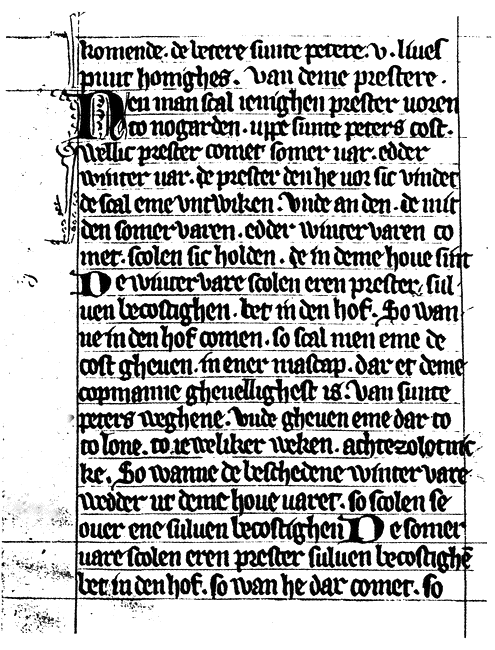 komende. de betere sunte petere. v. liues
punt honighes. Van deme prestere.
Men man scal ienighen prester uoren
to nogarden. uppe sunte peters cost.
wellic prester comet somer uar. edder
winter uar. de prester den he uor sic vindet
de scal eme vntwiken. Vnde an den. de mit
den somer varen. edder winter varen co
met. scolen sic holden. de in deme houe sint
De winter vare scolen eren prester sul
uen becostighen. bet in den hof. So wan
ne in den hof comen. so scal men eme de
cost gheuen. in ener mascap. dar et deme
copmanne gheuellighest is. Van sunte
peters weghene. Vnde gheuen eme dar to
to lone. to ieweliker weken. achtezolotnic
ke. So wanne de beschedene winter vare
wedder ut deme houe uaret. so scolen se
ouer ene suluen becostighen De somer
uare scolen eren prester suluen becostighē
bet in den hof. so wan he dar comet. so